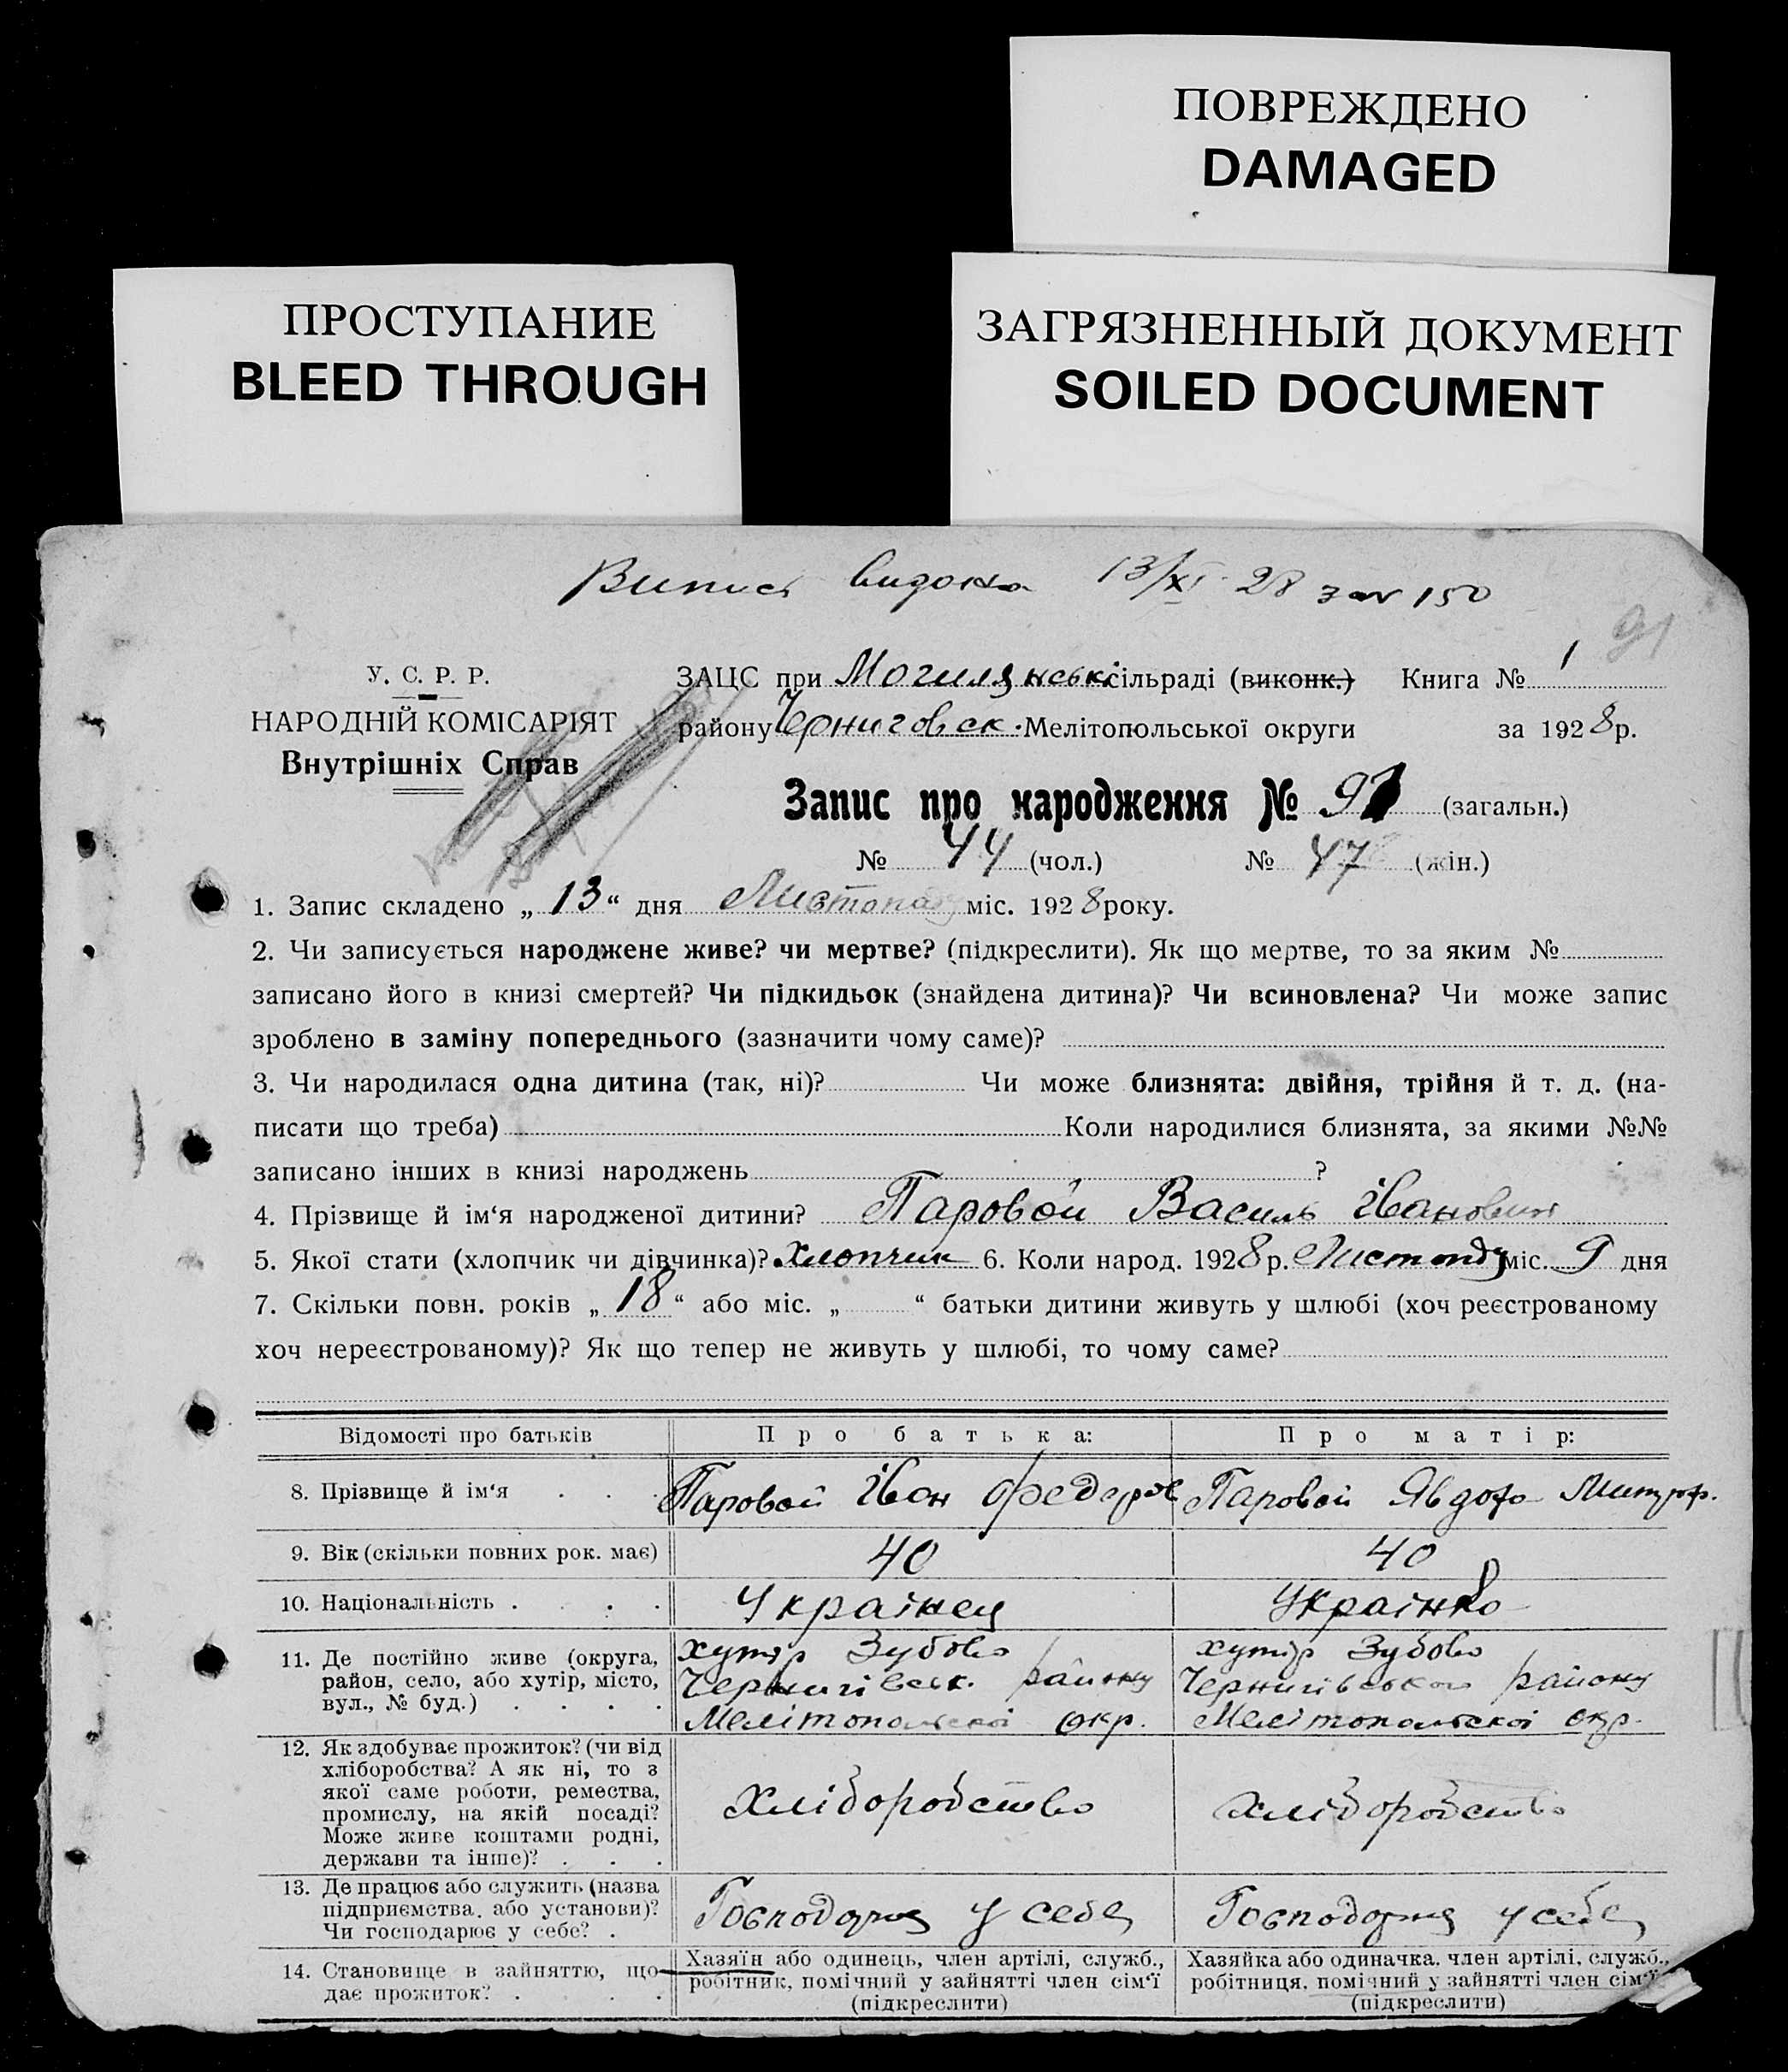 ПОВРЕЖДЕНО
DAMAGED
ПРОСТУПАНИЕ
BLEED THROUGH
ЗАГРЯЗНЕННЫЙ ДОКУМЕНТ
SOILED DOCUMENT
Випись видана 13/XI 28 зах 150
91
У. С. Р. Р.
НАРОДНІЙ КОМІСАРІЯТ
Внутрішніх Справ
ЗАЦС при Могилянські сільраді (виконк.) Книга № 1
району Черниговск. Мелітопольської округи за 1928 р.
Запис про народження № 91 (загальн.)
№ 44 (чол.) № 47 (жін.)
1. Запис складено „ 13 “ дня Листопаду міс. 1928 року.
2. Чи записується народжене живе? чи мертве? (підкреслити). Як що мертве, то за яким №
записано його в книзі смертей? Чи підкидьок (знайдена дитина)? Чи всиновлена? Чи може запис
зроблено в заміну попереднього (зазначити чому саме)?
3. Чи народилася одна дитина (так, ні)? Чи може близнята: двійня, трійня й т. д. (на-
писати що треба) Коли народилися близнята, за якими №№
записано інших в книзі народжень ?
4. Прізвище й ім‘я народженої дитини? Паровой Василь Іванович
5. Якої стати (хлопчик чи дівчинка)? Хлопчик 6. Коли народ. 1928 р. Листопду міс. 9 дня
7. Скільки повн. років „ 18 “ або міс. „ “ батьки дитини живуть у шлюбі (хоч реєстрованому
хоч нереєстрованому)? Як що тепер не живуть у шлюбі, то чому саме?
Відомості про батьків Про батька: Про матір:
8. Прізвище й ім‘я Паровой Іван Федоров Паровой Явдоха Митроф.
9. Вік (скільки повних рок. має) 40 40
10. Національність Українец Українка
11. Де постійно живе (округа, район, село, або хутір, місто, вул., № буд.)
хутір Зубово
Чернигівськ. району
Мелітопольскої окр.
хутір Зубово
Чернигівського району
Мелітопольскої окр.
12. Як здобуває прожиток? (чи від
хліборобства? А як ні, то з
якої саме роботи, ремества,
промислу, на якій посаді?
Може живе коштами родні,
держави та інше)?
Хліборобство Хліборобство
13. Де працює або служить (назва
підприємства, або установи)?
Чи господарює у себе?
Господарює у себе Господарює у себе
14. Становище в зайняттю, що
дає прожиток?
Хазяїн або одинець, член артілі, служб.,
робітник, помічний у зайнятті член сім‘ї
(підкреслити)
Хазяйка або одиначка, член артілі, служб.,
робітниця, помічний у зайнятті член сім‘ї
(підкреслити)